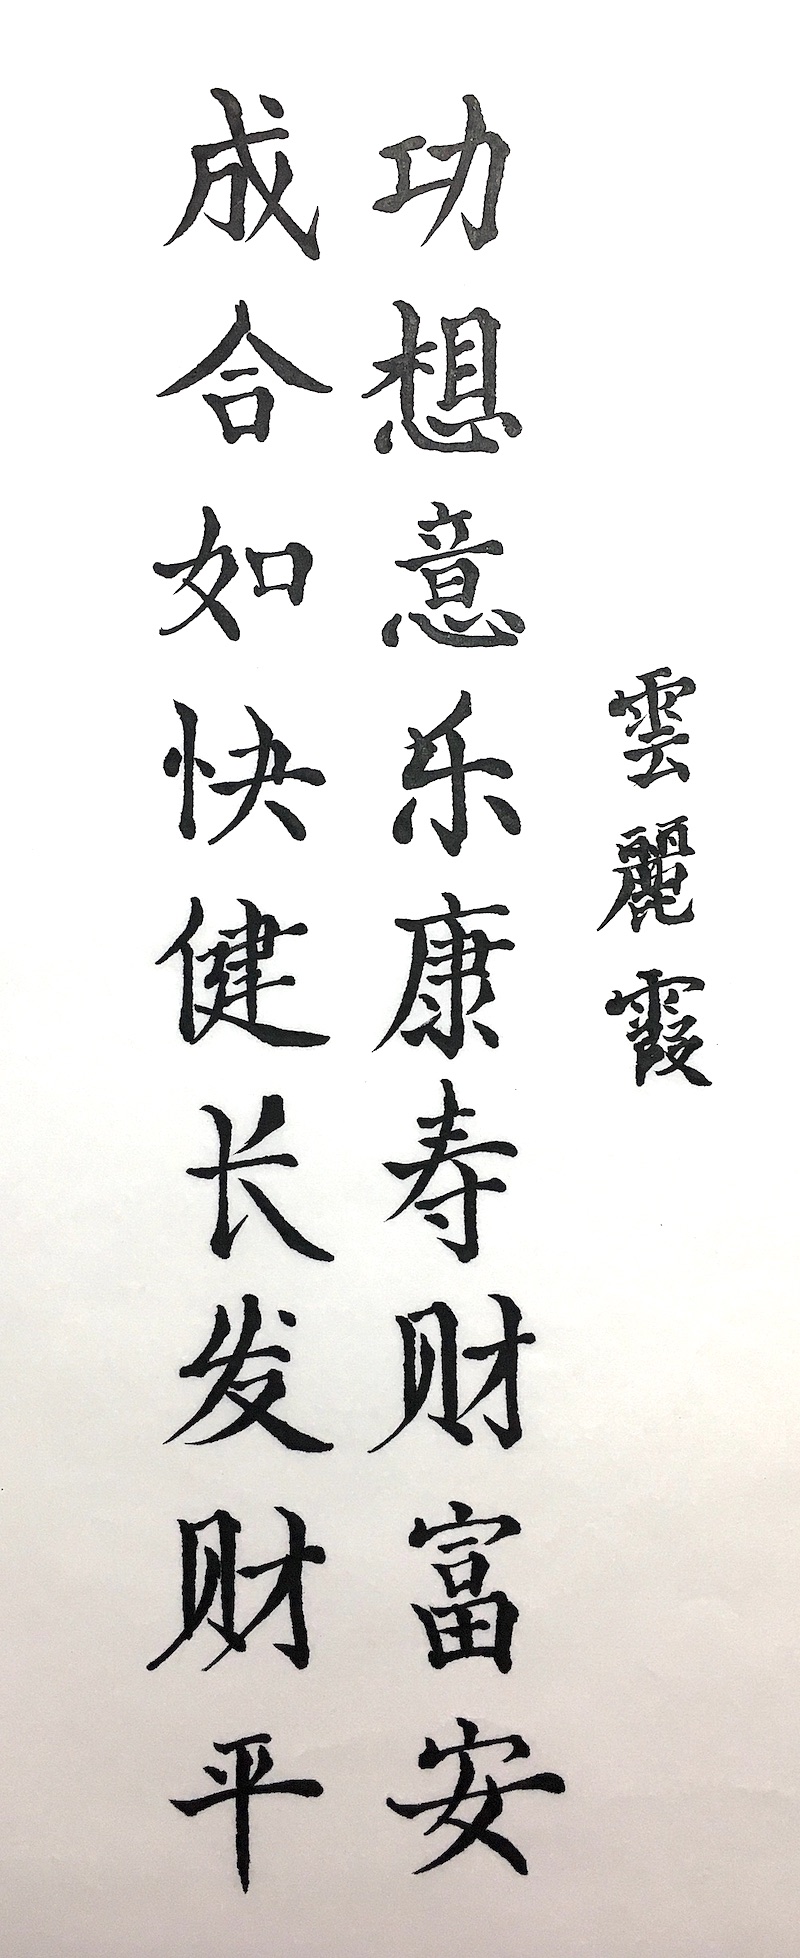 成功
合想
如意
快乐
健康
长寿
发财
财富
平安
雲麗霞